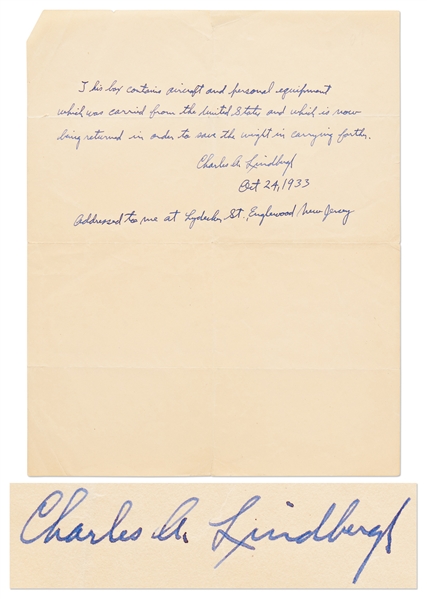 This box contains aircraft and personal equipment
which was carried from the United States and which is now
being returned in order to save the weight in carrying further.
Charles A. Lindbergh
Oct 24, 1933
Addressed to me at Lydecker St., Englewood New Jersey
Charles A. Lindbergh